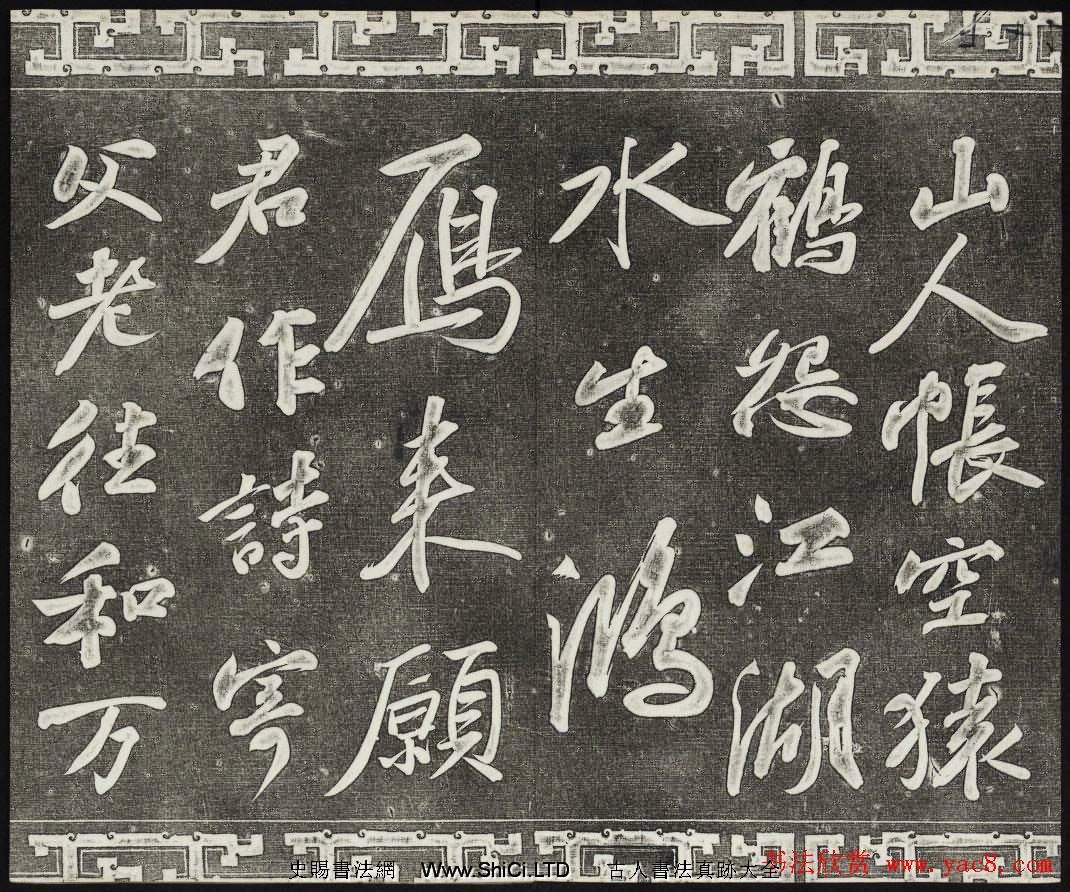 山人帳空猿
鶴怨江湖
水生鴻
鴈来願
君作詩寄
父老往和万
史賜書法網 Www.ShiCi.LTD 古人書法真跡大全
书法欣赏 www.yac8.com